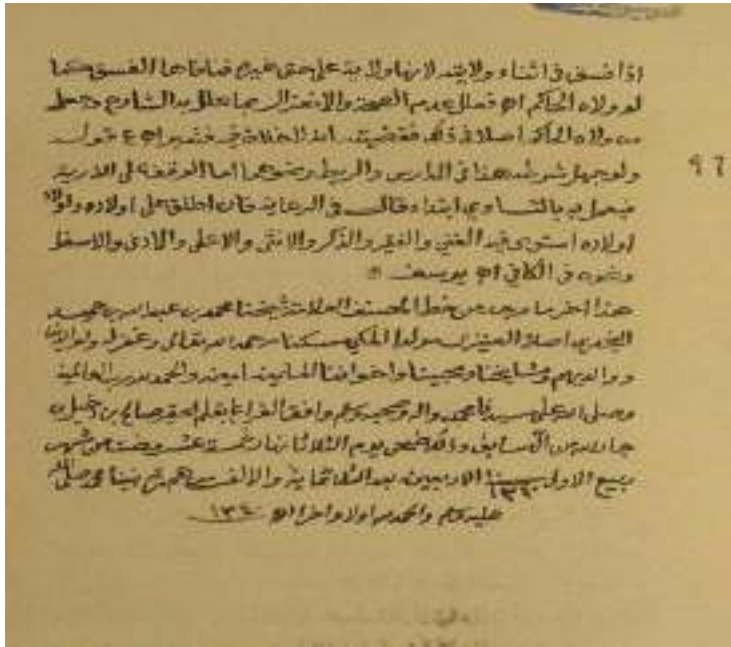 اذا فسق في اثناء ولايته لانها ولاية على حق غيره فنافاها الفسق كما
لو ولاه الحاكم اه فعلل بعدم الصحة والانعزال
من ولاه الحاكم اصلا في ذلك فقضيته ان الخلاف فيه
ولو جهل شرطه هذا في المدارس والربط ونحوهما اما الوقف على الذرية
فيعمل به بالتساوي ابتداء قال في الرعاية فان اطلق على اولاده واولاد
اولاده استوى فيه الغني والفقير والذكر والانثى والاعلى والادنى والاسفل
ونحوه في الكافي اه يوسف
هذا اخر ما وجد من خط المصنف العلامة شيخنا محمد بن عبدالله بن حميد
النجدي اصلا العنيزي مولدا المكي مسكنا رحمه الله تعالى وغفر له ولوالدينا
ووالديهم ومشايخنا ومحبينا واخواننا المسلمين امين والحمد لله رب العالمين
وصلى الله على سيدنا محمد واله وصحبه وسلم وافق الفراغ بقلم الحقير صالح بن
يوم الثلاثاء نهار خمسة عشر مضت من شهر
ربيع الاول سنة ١٣٤٠ الاربعين بعد الثلاثماية والالف من هجرة نبينا محمد صلى الله
عليه وسلم والحمد لله اولا واخرا اه ١٣٤٠
٩٦